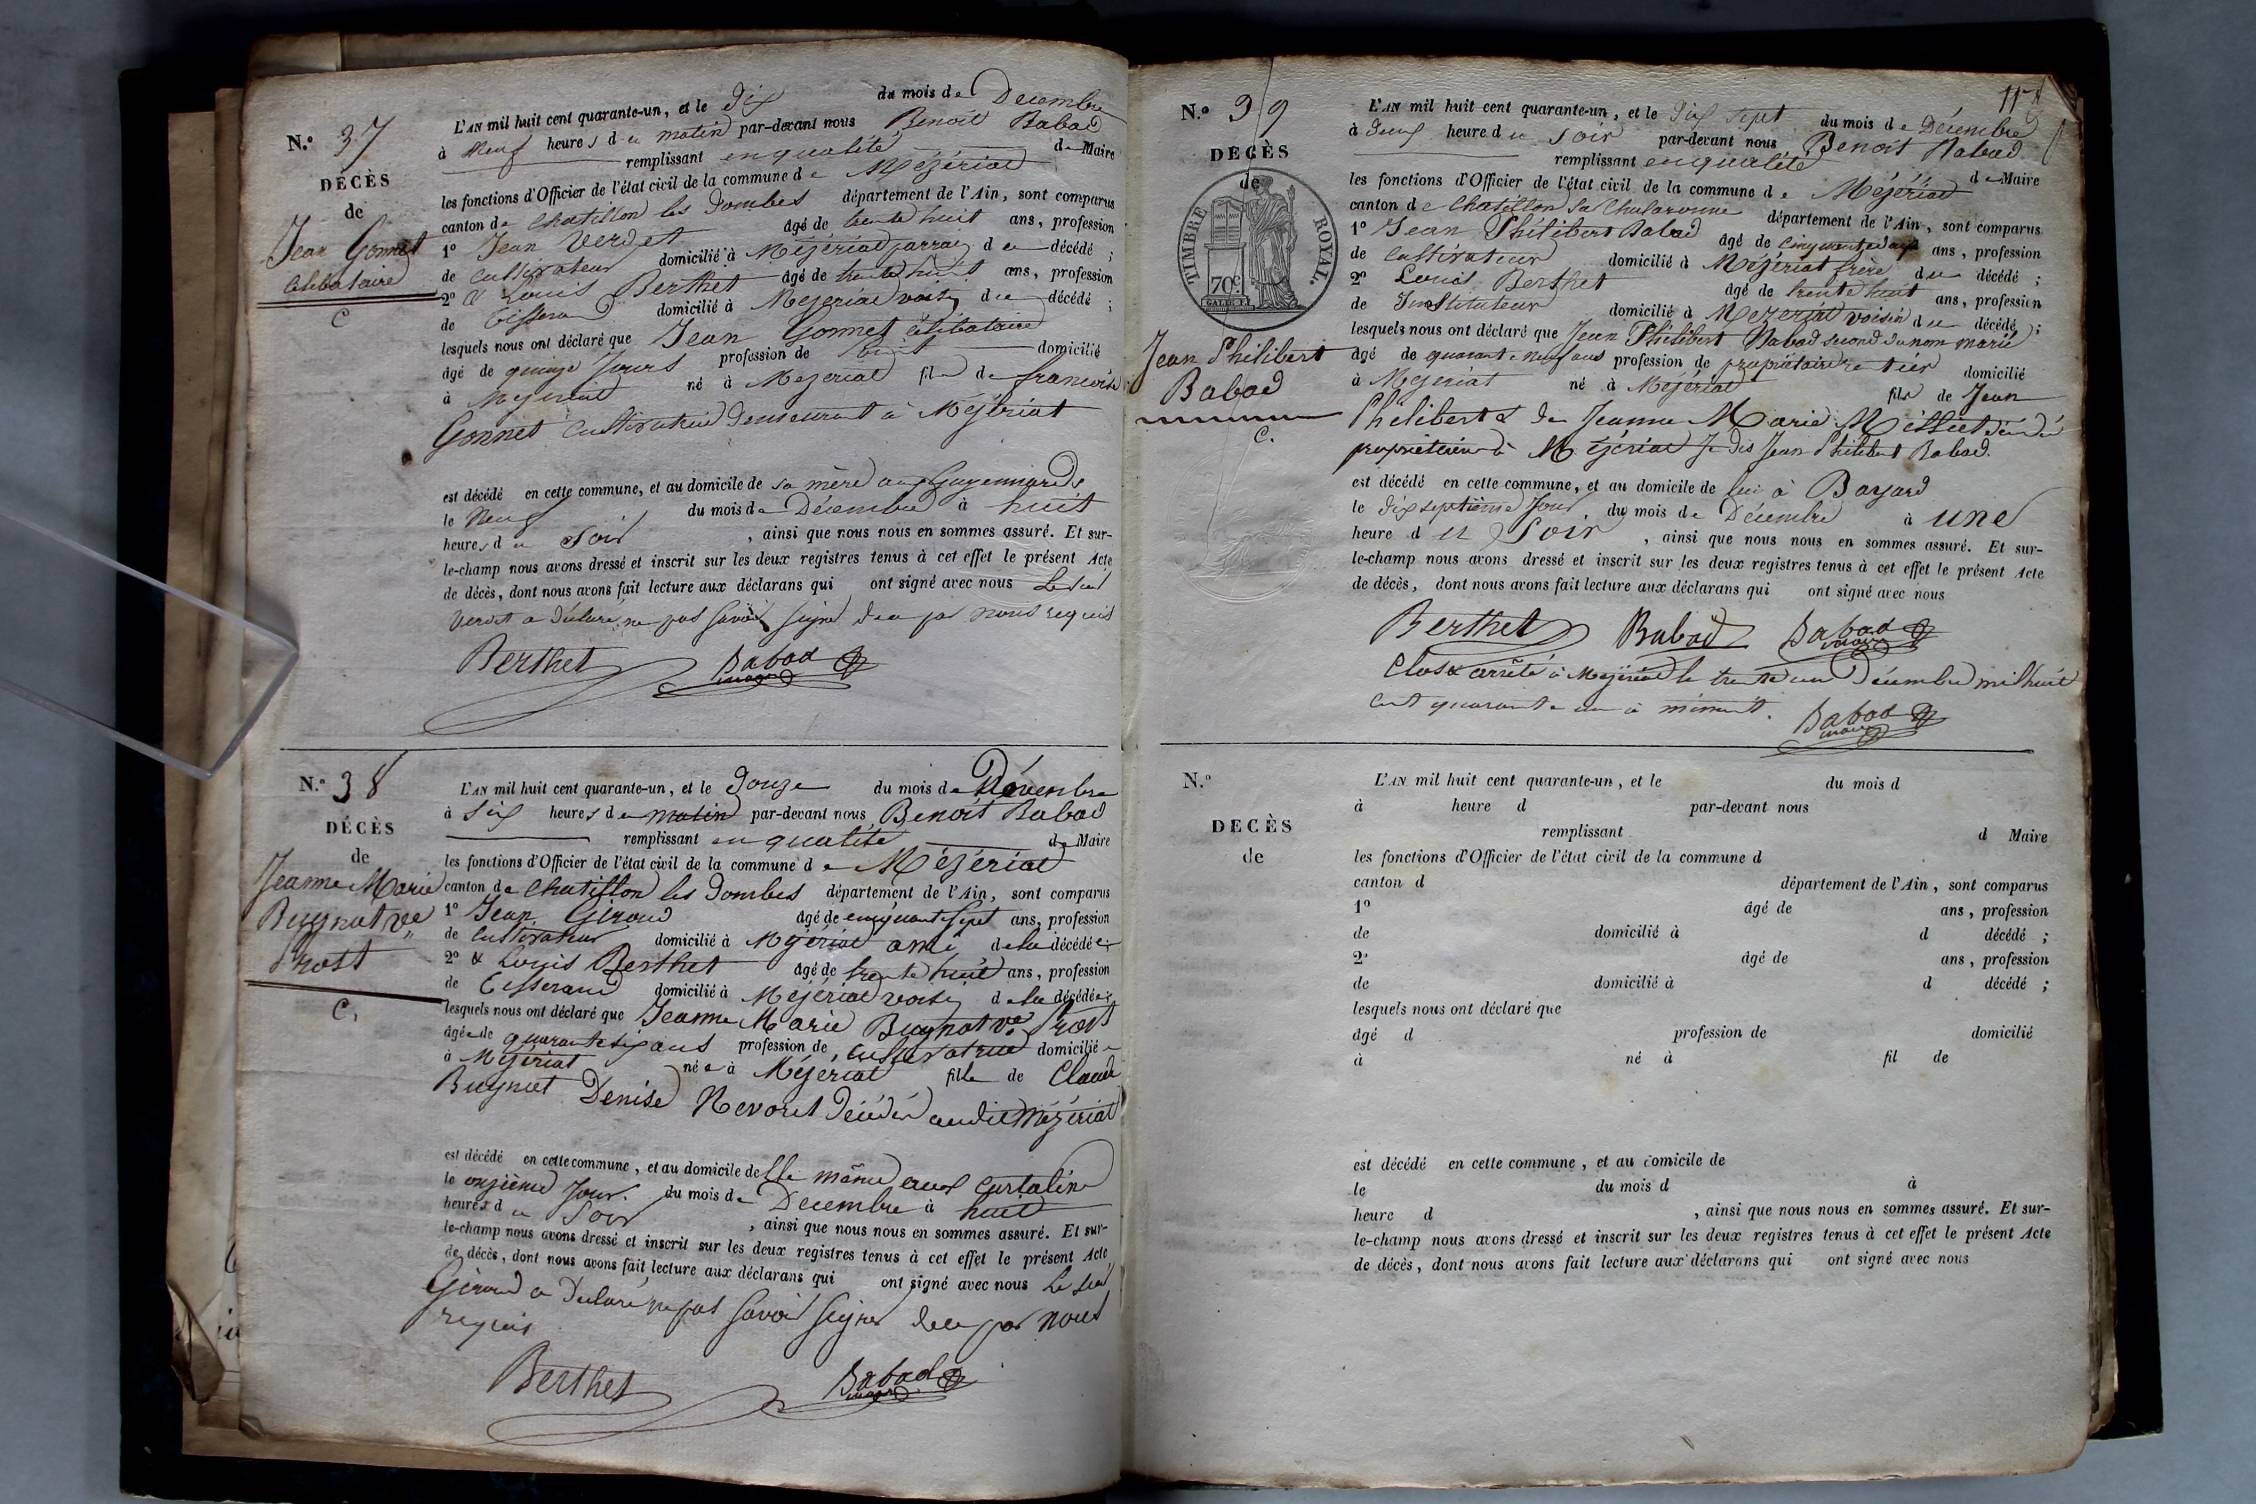 N.º 37
DÉCÈS
de
Jean Gonnet
célibataire
C
L'AN mil huit cent quarante-un, et le dix du mois de Decembre
à Neuf heures du matin par-devant nous Benoit Babad
remplissant en qualité de Maire
les fonctions d'Officier de l'état civil de la commune de Mézériat
canton de Chatillon les Dombes département de l'Ain, sont comparus
1º Jean Verdet âgé de trente huit ans, profession
de Cultivateur domicilié à Mézériat parrain du décédé ;
2º & Louis Berthet âgé de trente huit ans, profession
de Tisserand domicilié à Mezeriat voisin du décédé ;
lesquels nous ont déclaré que Jean Gonnet célibataire
âgé de quinze Jours profession de domicilié
à Mezeriat né à Mezeriat fils de francoise
Gonnet Cultivatrice demeurant à Mézériat
est décédé en cette commune, et au domicile de sa mère aux Guyennards
le Neuf du mois de Décembre à huit
heures du Soir , ainsi que nous nous en sommes assuré. Et sur-
le-champ nous avons dressé et inscrit sur les deux registres tenus à cet effet le présent Acte
de décès, dont nous avons fait lecture aux déclarans qui ont signé avec nous
Verdet a déclaré ne pas savoir signer de ce par nous requis
Berthet Babad
maire
N.º 38
DÉCÈS
de
Jeanne Marie
Buynat ve
Prost
C.
L'AN mil huit cent quarante-un, et le Douze du mois de Décembre
à Six heures du matin par-devant nous Benoit Babad
remplissant en qualité de Maire
les fonctions d'Officier de l'état civil de la commune de Mézériat
canton de Chatillon les Dombes département de l'Ain, sont comparus
1º Jean Giroud âgé de cinquante sept ans, profession
de Cultivateur domicilié à Mézériat ami de la décédée
2º & Louis Berthet âgé de trente huit ans, profession
de Tisserand domicilié à Mézériat voisin de la décédée
lesquels nous ont déclaré que Jeanne Marie Buynat ve Prost
âgée de quarante six ans profession de cultivatrice domiciliée
à Mézériat née à Mézeriat fille de Claude
Buynat Denise Nevoret décédés audit Mézériat
est décédé en cette commune, et au domicile de Elle même aux Curtalin
le onzième Jour du mois de Decembre à huit
heures du Soir , ainsi que nous nous en sommes assuré. Et sur-
le-champ nous avons dressé et inscrit sur les deux registres tenus à cet effet le présent Acte
de décès, dont nous avons fait lecture aux déclarans qui ont signé avec nous
Giroud a Déclaré ne pas savoir signer de ce par nous
requis
Berthet Babad
maire
115
N.º 39
DECÈS
de
TIMBRE ROYAL.
70c.
Jean Philibert
Babad
C.
L'AN mil huit cent quarante-un, et le dix sept du mois de Décembre
à deux heure du Soir par-devant nous Benoit Babad
remplissant en qualité de Maire
les fonctions d'Officier de l'état civil de la commune de Mézériat
canton de Chatillon sur Chalaronne département de l'Ain, sont comparus
1º Jean Philibert Babad âgé de ans, profession
de Cultivateur domicilié à Mézériat frère du décédé ;
2º Louis Berthet âgé de trente huit ans, profession
de Instituteur domicilié à Mezeriat voisin du décédé ;
lesquels nous ont déclaré que Jean Philibert Babad second du nom marié
âgé de quarante neuf ans profession de propriétaire rentier domicilié
à Mezeriat né à Mézériat fils de Jean
Philibert & de Jeanne Marie décédé
propriétaire à Mézériat Je dis Jean Philibert Babad.
est décédé en cette commune, et au domicile de lui à Bayard
le dix septième Jour du mois de Décembre à une
heure du Soir , ainsi que nous nous en sommes assuré. Et sur-
le-champ nous avons dressé et inscrit sur les deux registres tenus à cet effet le présent Acte
de décès, dont nous avons fait lecture aux déclarans qui ont signé avec nous
Berthet Babad Babad
maire
Clos & arrêté à Mezériat le trente un Décembre mil huit
cent quarante un à minuit. Babad
maire
N.º
DECÈS
de
L'AN mil huit cent quarante-un, et le du mois d
à heure d par-devant nous
remplissant d Maire
les fonctions d'Officier de l'état civil de la commune d
canton d département de l'Ain, sont comparus
1º âgé de ans, profession
de domicilié à d décédé ;
2º âgé de ans, profession
de domicilié à d décédé ;
lesquels nous ont déclaré que
âgé d profession de domicilié
à né à fil de
est décédé en cette commune, et au domicile de
le du mois d à
heure d , ainsi que nous nous en sommes assuré. Et sur-
le-champ nous avons dressé et inscrit sur les deux registres tenus à cet effet le présent Acte
de décès, dont nous avons fait lecture aux déclarans qui ont signé avec nous